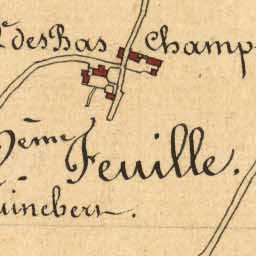 des Bas Champ
ème Feuille.
uinebert.